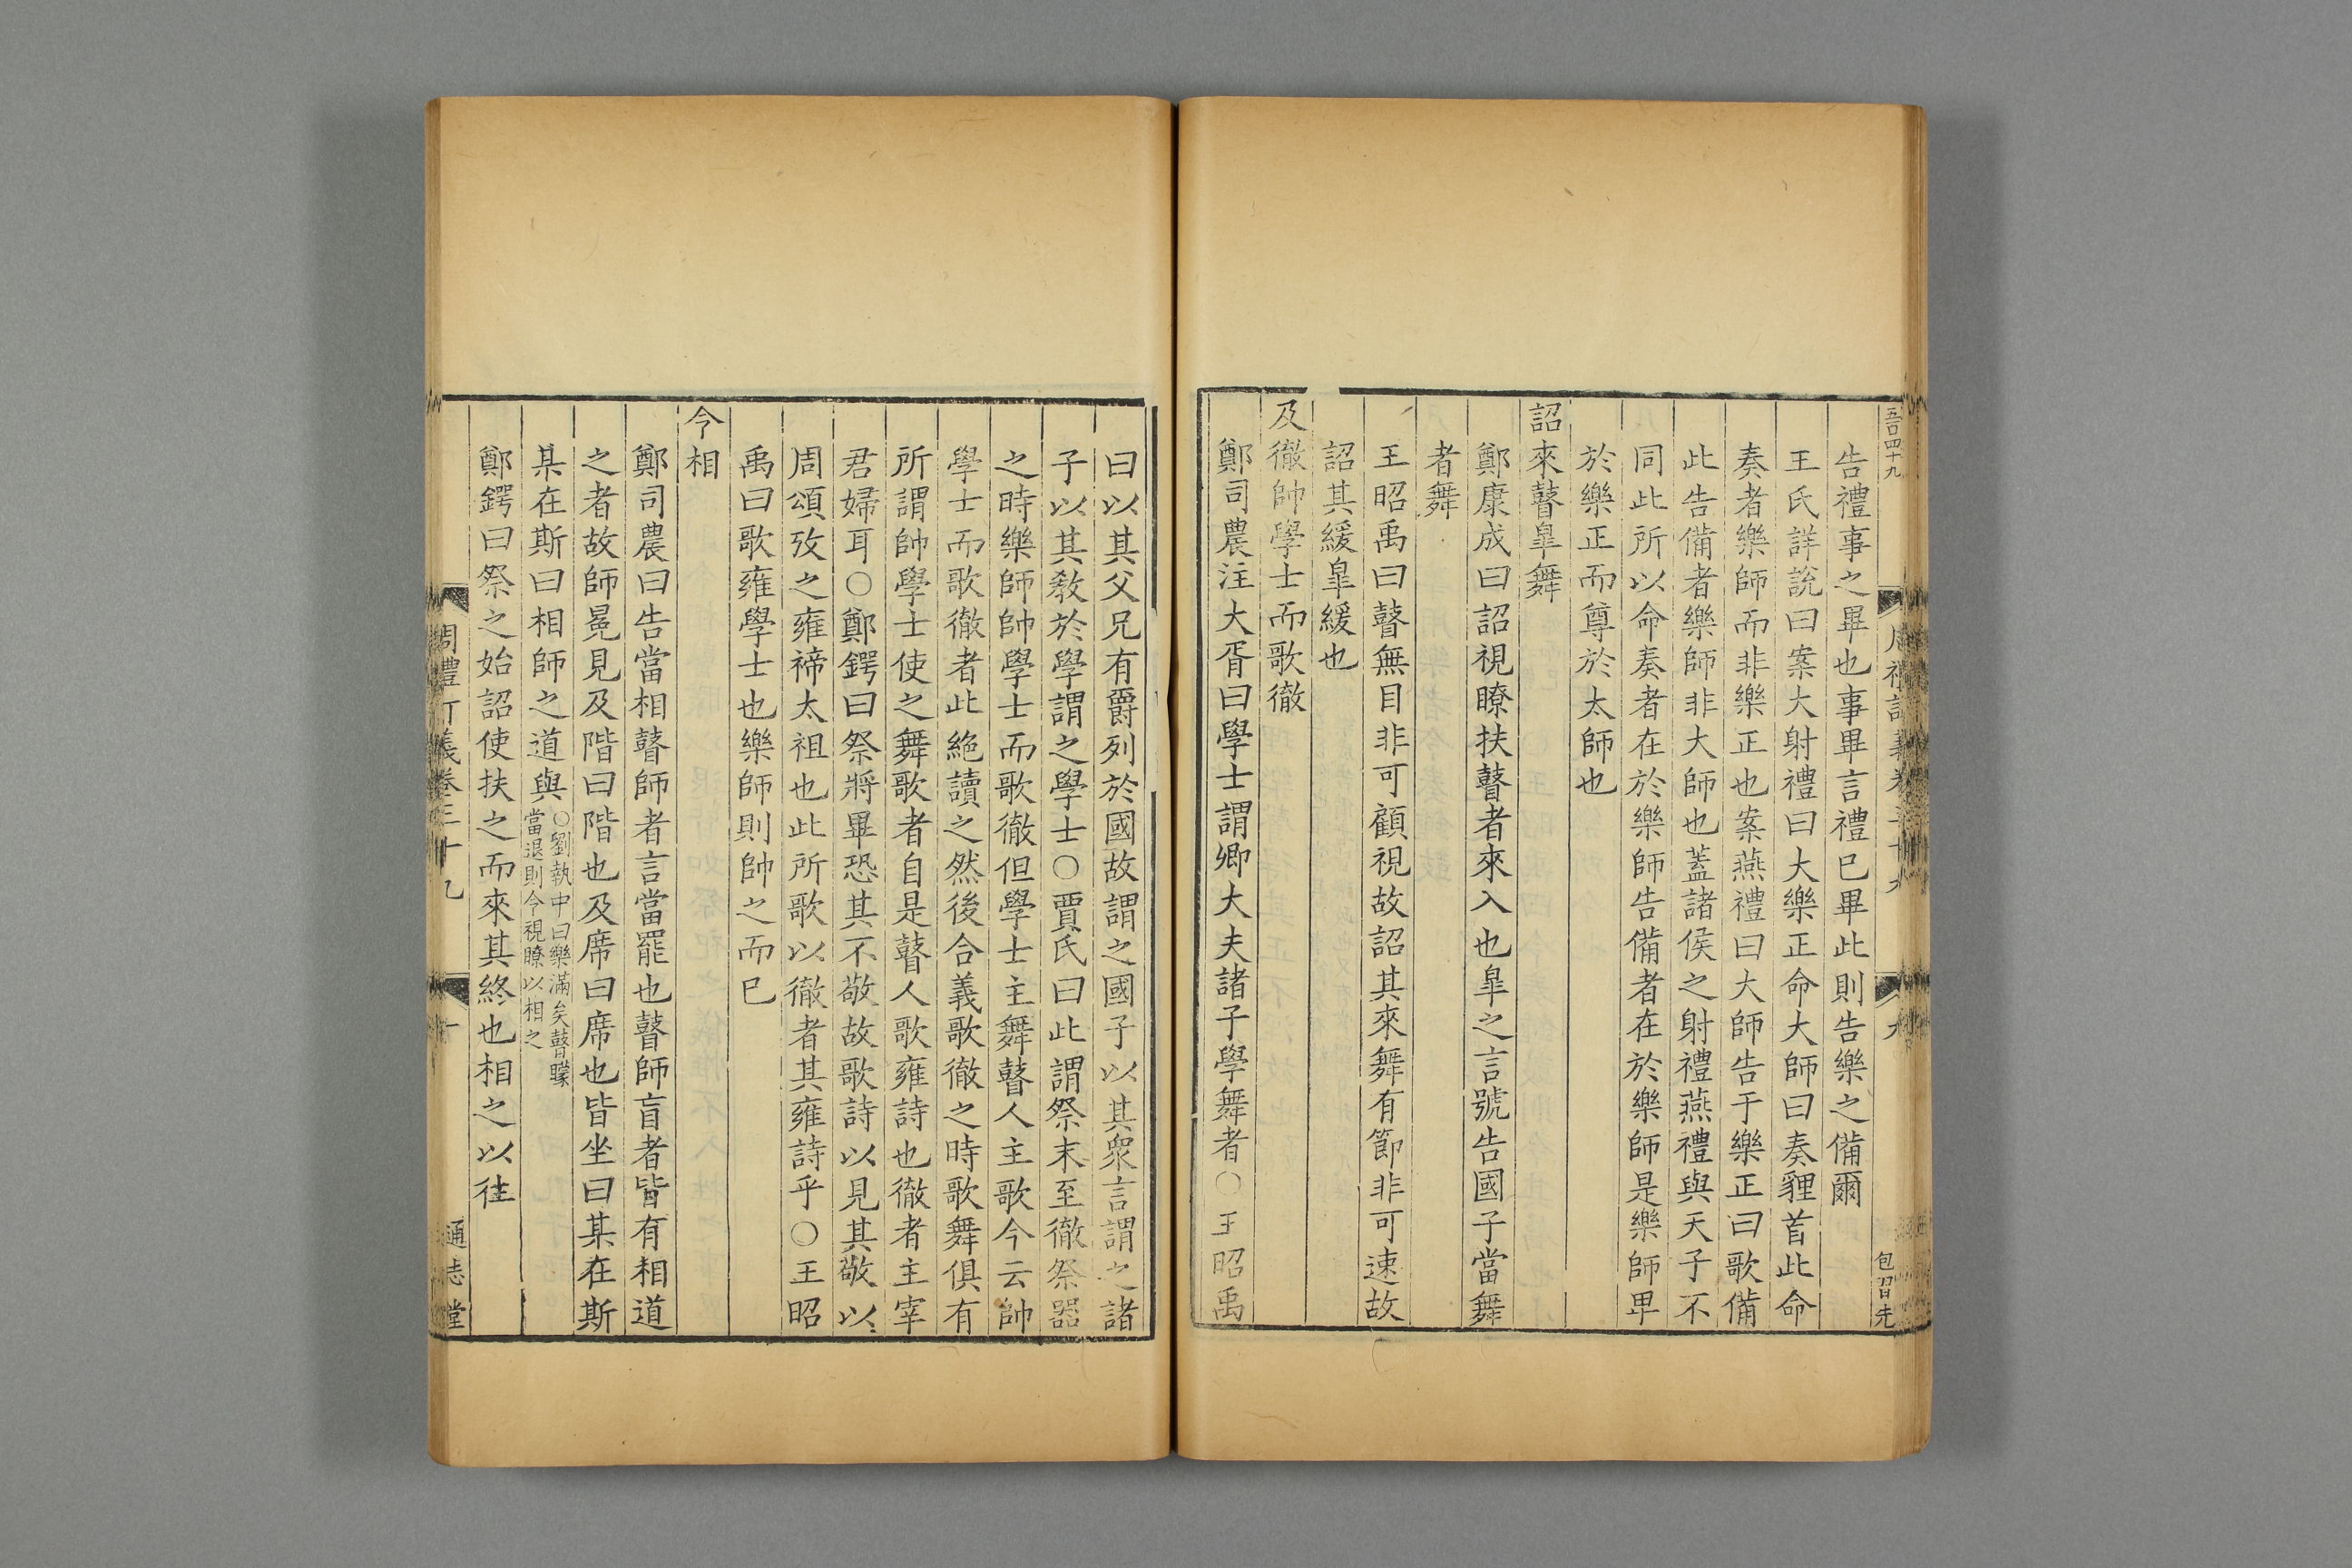 告禮事之畢也事畢言禮已畢此則告樂之備爾
王氏詳說曰案大射禮曰大樂正命大師曰奏貍首此命
奏者樂師而非樂正也案燕禮曰大師告于樂正曰歌備
此告備者樂師非大師也蓋諸侯之射禮燕禮與天子不
同此所以命奏者在於樂師告備者在於樂師是樂師畀
於樂正而尊於太師也
詔來瞽臯舞
鄭康成曰詔視瞭扶瞽者來入也臯之言號告國子當舞
者舞
王昭禹曰瞽無目非可顧視故詔其來舞有節非可速故
詔其緩臯緩也
及徹帥學士而歌徹
鄭司農注大胥曰學士謂卿大夫諸子學舞者○王昭禹
曰以其父兄有爵列於國故謂之國子以其衆言謂之諸
子以其敎於學謂之學士○賈氏曰此謂祭末至徹祭器
之時樂師帥學士而歌徹但學士主舞瞽人主歌今云帥
學士而歌徹者此絶讀之然後合義歌徹之時歌舞俱有
所謂帥學士使之舞歌者自是瞽人歌雍詩也徹者主宰
君婦耳○鄭鍔曰祭將畢恐其不敬故歌詩以見其敬以
周頌攷之雍禘太祖也此所歌以徹者其雍詩乎○王昭
禹曰歌雍學士也樂師則帥之而已
令相
鄭司農曰告當相瞽師者言當罷也瞽師盲者皆有相道
之者故師冕見及階曰階也及席曰席也皆坐曰某在斯
某在斯曰相師之道與○劉執中曰樂滿矣瞽矇
當退則令視瞭以相之
鄭鍔曰祭之始詔使扶之而來其終也相之以徃
周禮訂義卷三十九
十
通志堂
五百四十九
九
包習先